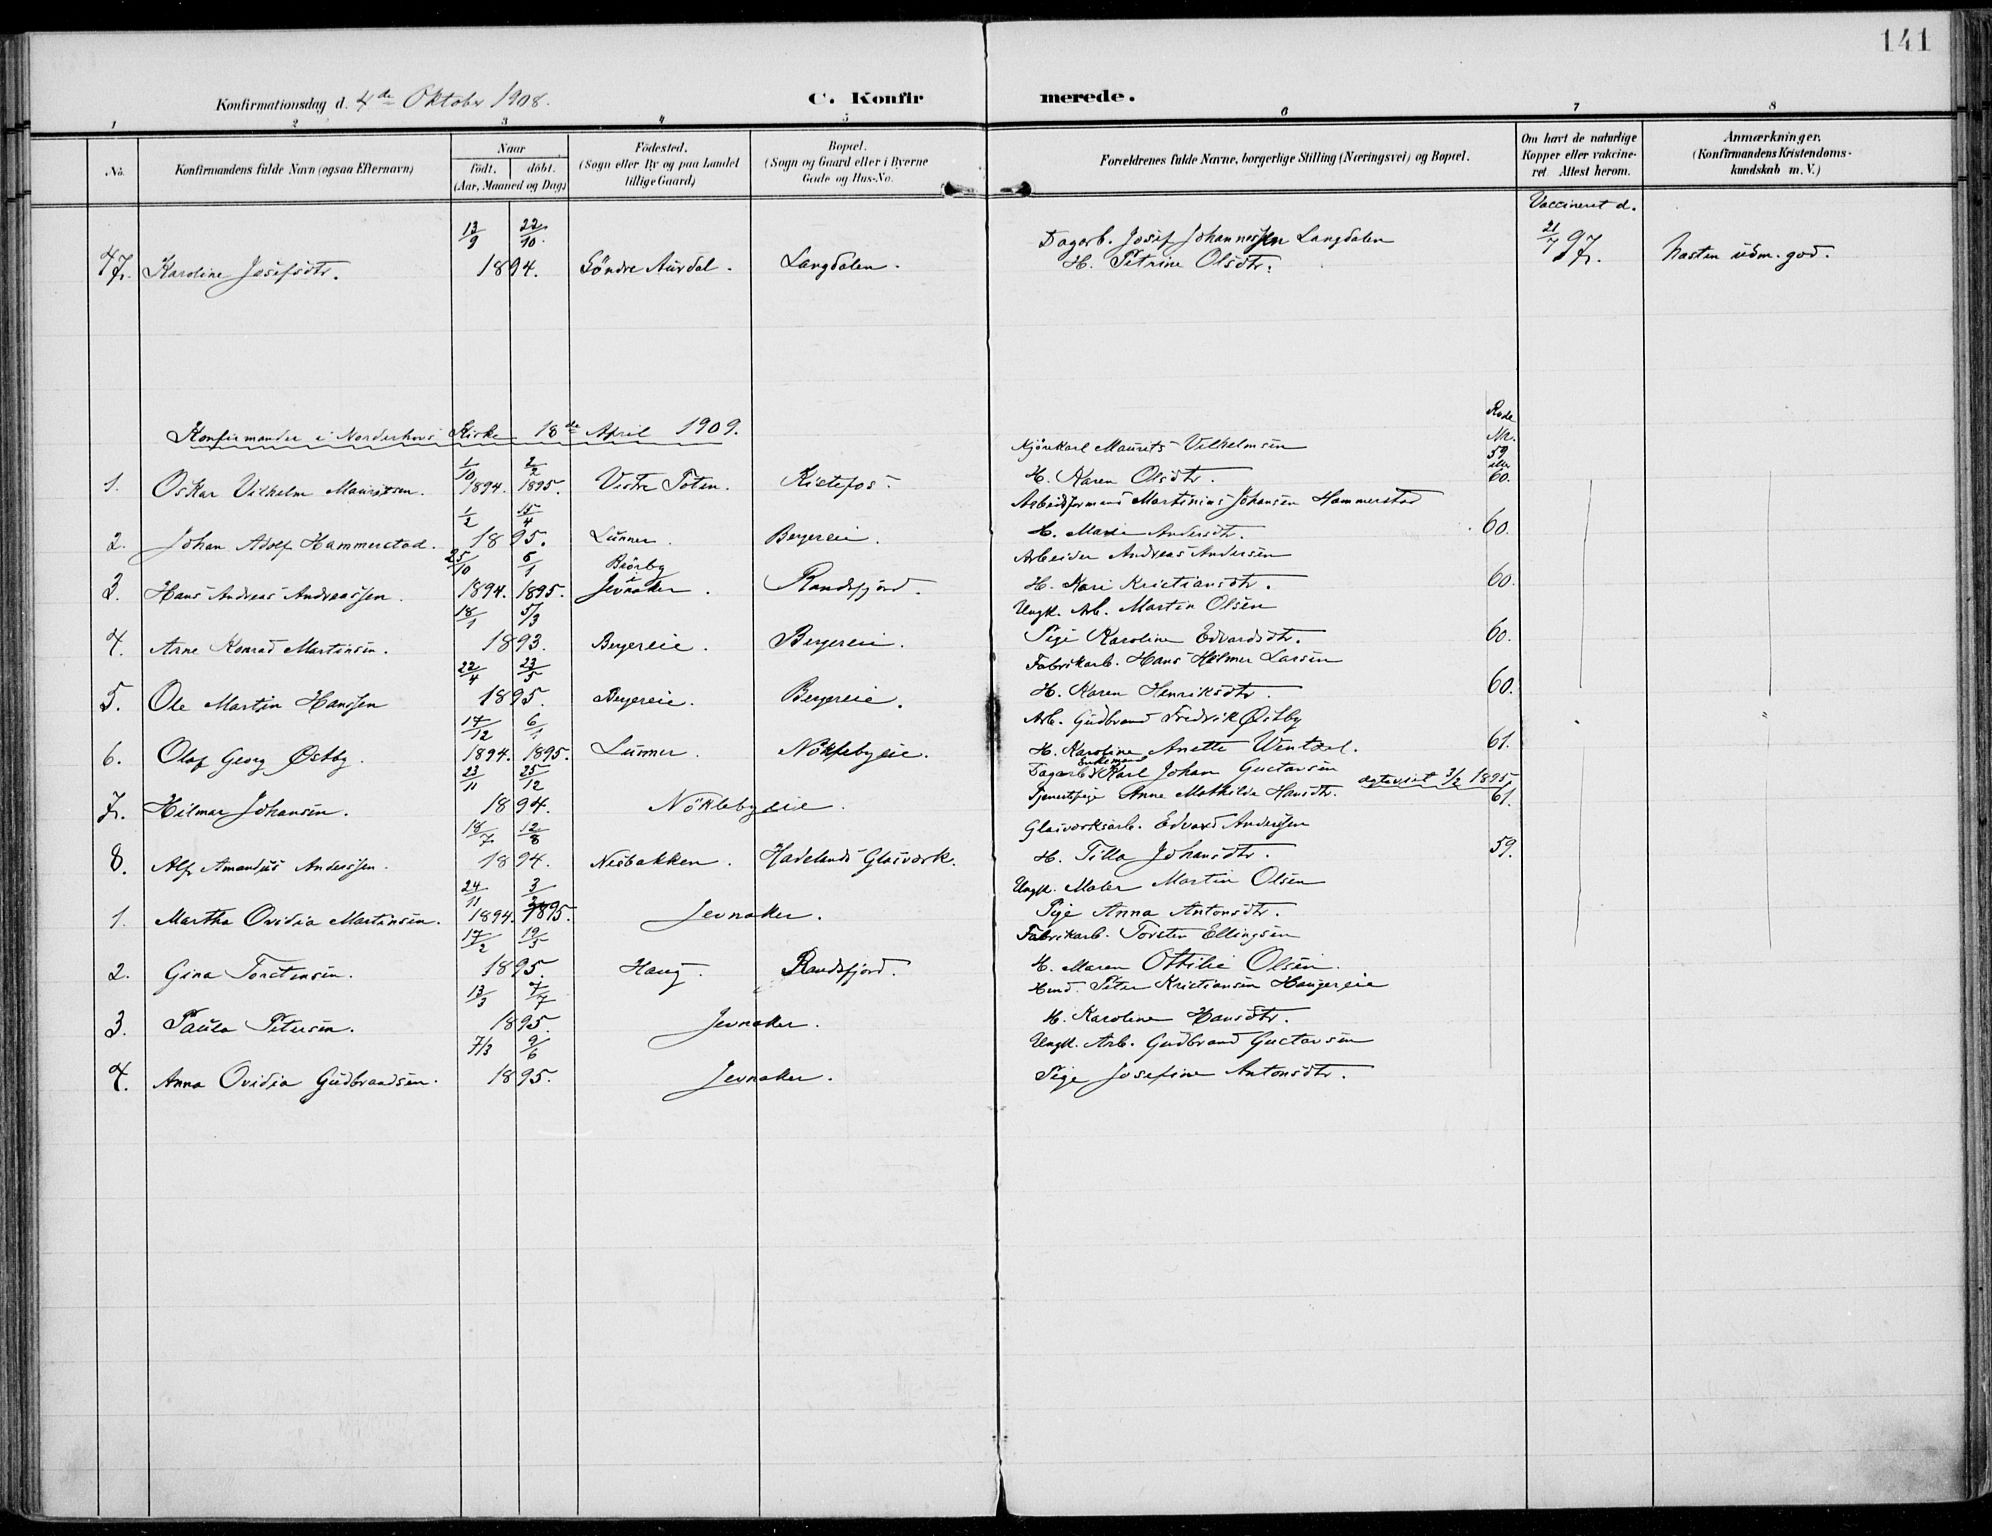 141
Konfirmationsdag d. 4de Oktober 1908. C. Konfirmerede.
1 2 3 4 5 6 7 8
No. Konfirmandens fulde Navn (ogsaa Efternavn) Naar født. døbt. (Aar, Maaned og Dag) Fødested. (Sogn eller By og paa Landet tillige Gaard) Bopæl. (Sogn og Gaard eller i Byerne Gade og Hus-No. Forældrenes fulde Navne, borgerlige Stilling (Næringsvei) og Bopæl. Om havt de naturlige Kopper eller vakcineret Attest herom. Anmærkninger. (Konfirmandens Kristendomskundskab m. V.)
Vaccineret d.
13/9 22/10. Dagarb. Josef Johannessen Langdalen 21/7 97
47. Karoline Josefsdtr. 1894. Søndre Aurdal. Langdalen. H. Petrine Olsdtr. Næsten udm. god.
Konfirmander i Norderhovs Kirke 18de April 1909. Rode Nr.
1/10 2/2 Kjørekarl Maurits Vilhelmsen 59 eller
1. Oskar Vilhelm Mauritsen. 1894. 1895. Vestre Toten. Kistefos. H. Karen Olsdtr. 60.
1/2 15/4 Arbeidsformand Martinius Johansen Hammerstad
2. Johan Adolf Hammerstad. 1895. Lunner. Bergereie. H. Marie Andersdtr. 60.
25/10 6/1 Bjørby Arbeider Andreas Andersen
3. Hans Andreas Andreassen. 1894. 1895. Jevnaker. Randsfjord. H. Kari Kristiansdtr. 60.
18/1 5/3 Ungk. Arb. Martin Olsen
4. Arne Konrad Martinsen. 1893. Bergereie. Bergereie. Pige Karoline Edvardsdtr. 60.
22/4 23/5 Fabrikarb. Hans Hilmer Larsen
5. Ole Martin Hansen 1895. Bergereie. Bergereie. H. Karen Henriksdtr. 60.
17/12 6/1 Arb. Gudbrand Fredrik Østby
6. Olaf Georg Østby. 1894. 1895. Lunner. Nøklebyeie. H. Karoline Anette Wentzel. 61.
23/11 25/12 Dagarb. Enkemand Karl Johan Gustavsen
7. Hilmar Johansen. 1894. Nøklebyeie. Tjenestepige Anne Mathilde Hansdtr. ægteviet 3/2 1895. 61.
18/7 12/8 Glasværksarb. Edvard Andersen
8. Alf Amandus Anderssen. 1894. Nesbakken. Hadelands Glasværk. H. Tilla Johansdtr. 59.
24/11 3/3 Ungk. Maler Martin Olsen
1. Martha Ovidia Martinsen. 1894. 1895. Jevnaker. Pige Anna Antonsdtr.
17/2 19/5 Fabrikarb. Torsten Ellingsen
2. Gina Torstensen. 1895. Haug. Randsfjord. H. Maren Ottilie Olsen.
13/3 7/7 Husd. Peter Kristiansen Haugereie
3. Paula Petersen. 1895. Jevnaker. H. Karoline Hansdtr.
7/3 9/6 Ungk. Arb. Gudbrand Gustavsen
4. Anna Ovidia Gudbrandsen. 1895. Jevnaker. Pige Josefine Antonsdtr.